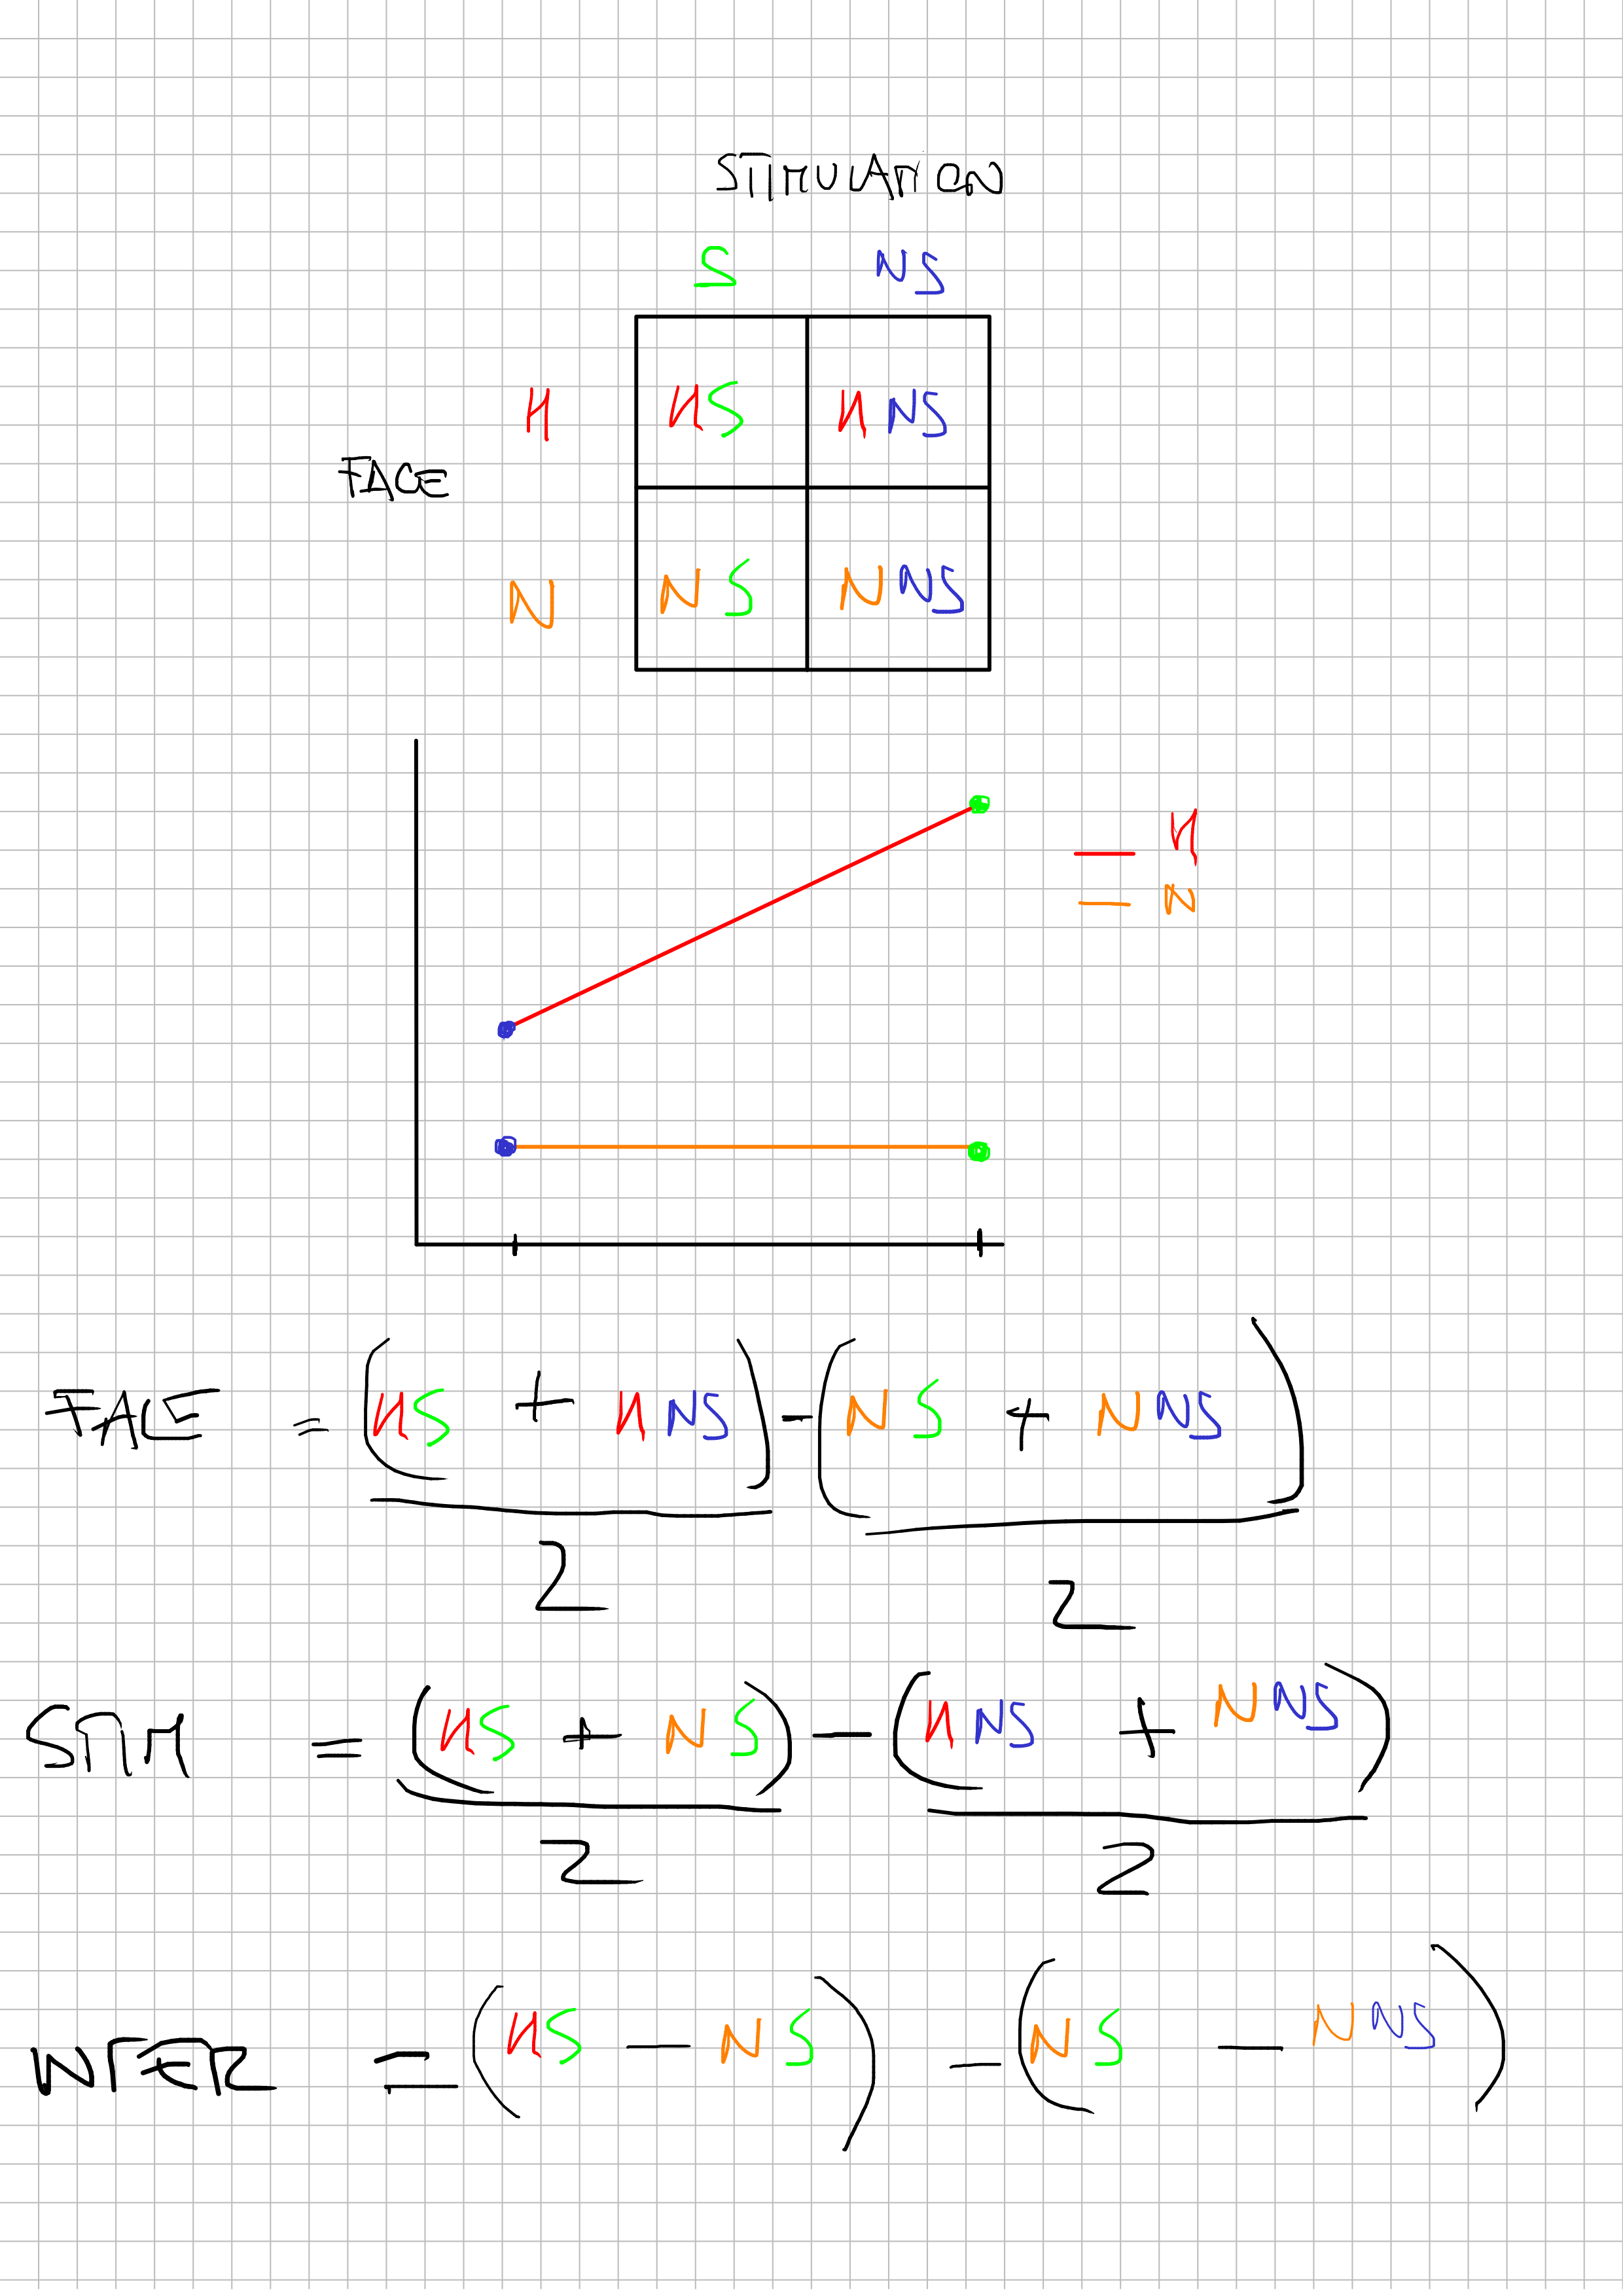 STIMULATION
S NS
H HS HNS
FACE
N NS NNS
H
N
FACE = (HS + HNS) - (NS + NNS)
2 2
STIM = (HS + NS) - (HNS + NNS)
2 2
INTER = (HS - NS) - (NS - NNS)